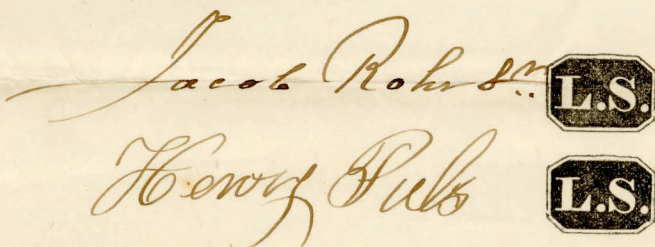 Jacob Rohr Sr. L.S.
Henry Puls L.S.